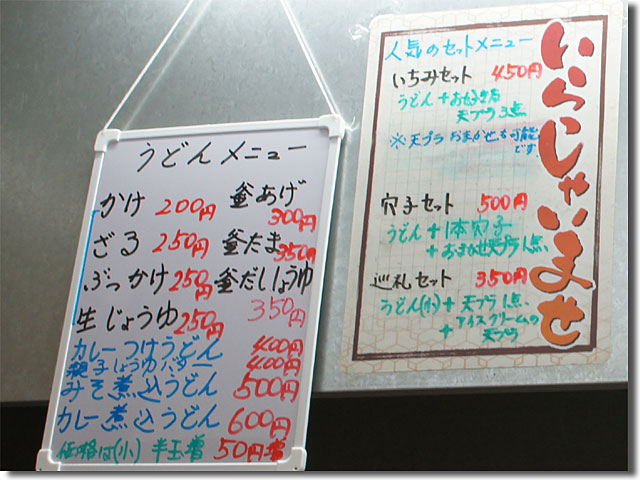 うどんメニュー
かけ 200円 釜あげ 300円
ざる 250円 釜たま 350円
ぶっかけ 250円 釜だしじょうゆ 350円
生じょうゆ 250円
カレーつけうどん 400円
親子しょうゆバター 400円
みそ煮込うどん 500円
カレー煮込うどん 600円
価格は(小) 半玉増 50円増
いらっしゃいませ
人気のセットメニュー
いちみセット 450円
うどん+お好き店
天プラ3点
※天プラおまかせも可能
です。
穴子セット 500円
うどん+1本穴子
+おまかせ天プラ1点、
巡礼セット 350円
うどん(小)+天プラ1点、
+アイスクリームの
天プラ